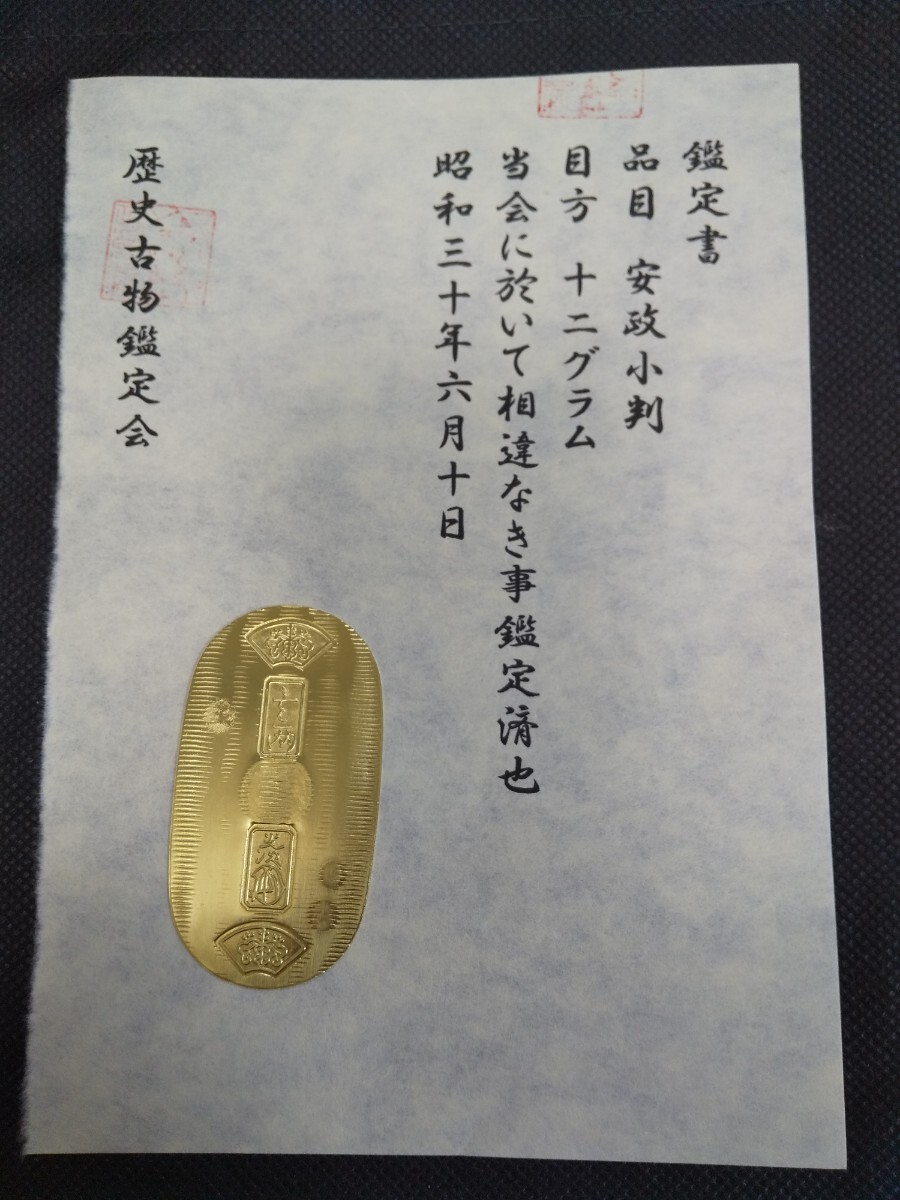 鑑定書
品目 安政小判
目方 十二グラム
当会に於いて相違なき事鑑定済也
昭和三十年六月十日
歴史古物鑑定会